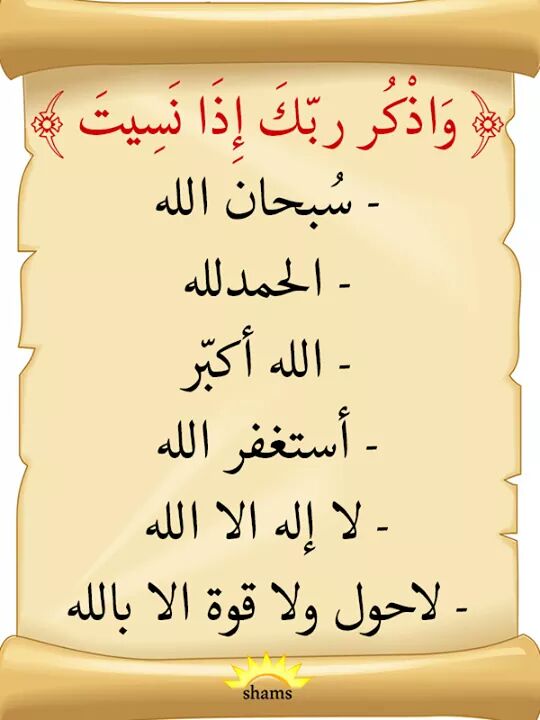 ﴿ وَاذْكُر ربّكَ إِذَا نَسِيتَ ﴾
- سُبحان الله
- الحمدلله
- الله أكبّر
- أستغفر الله
- لا إله الا الله
- لاحول ولا قوة الا بالله
shams